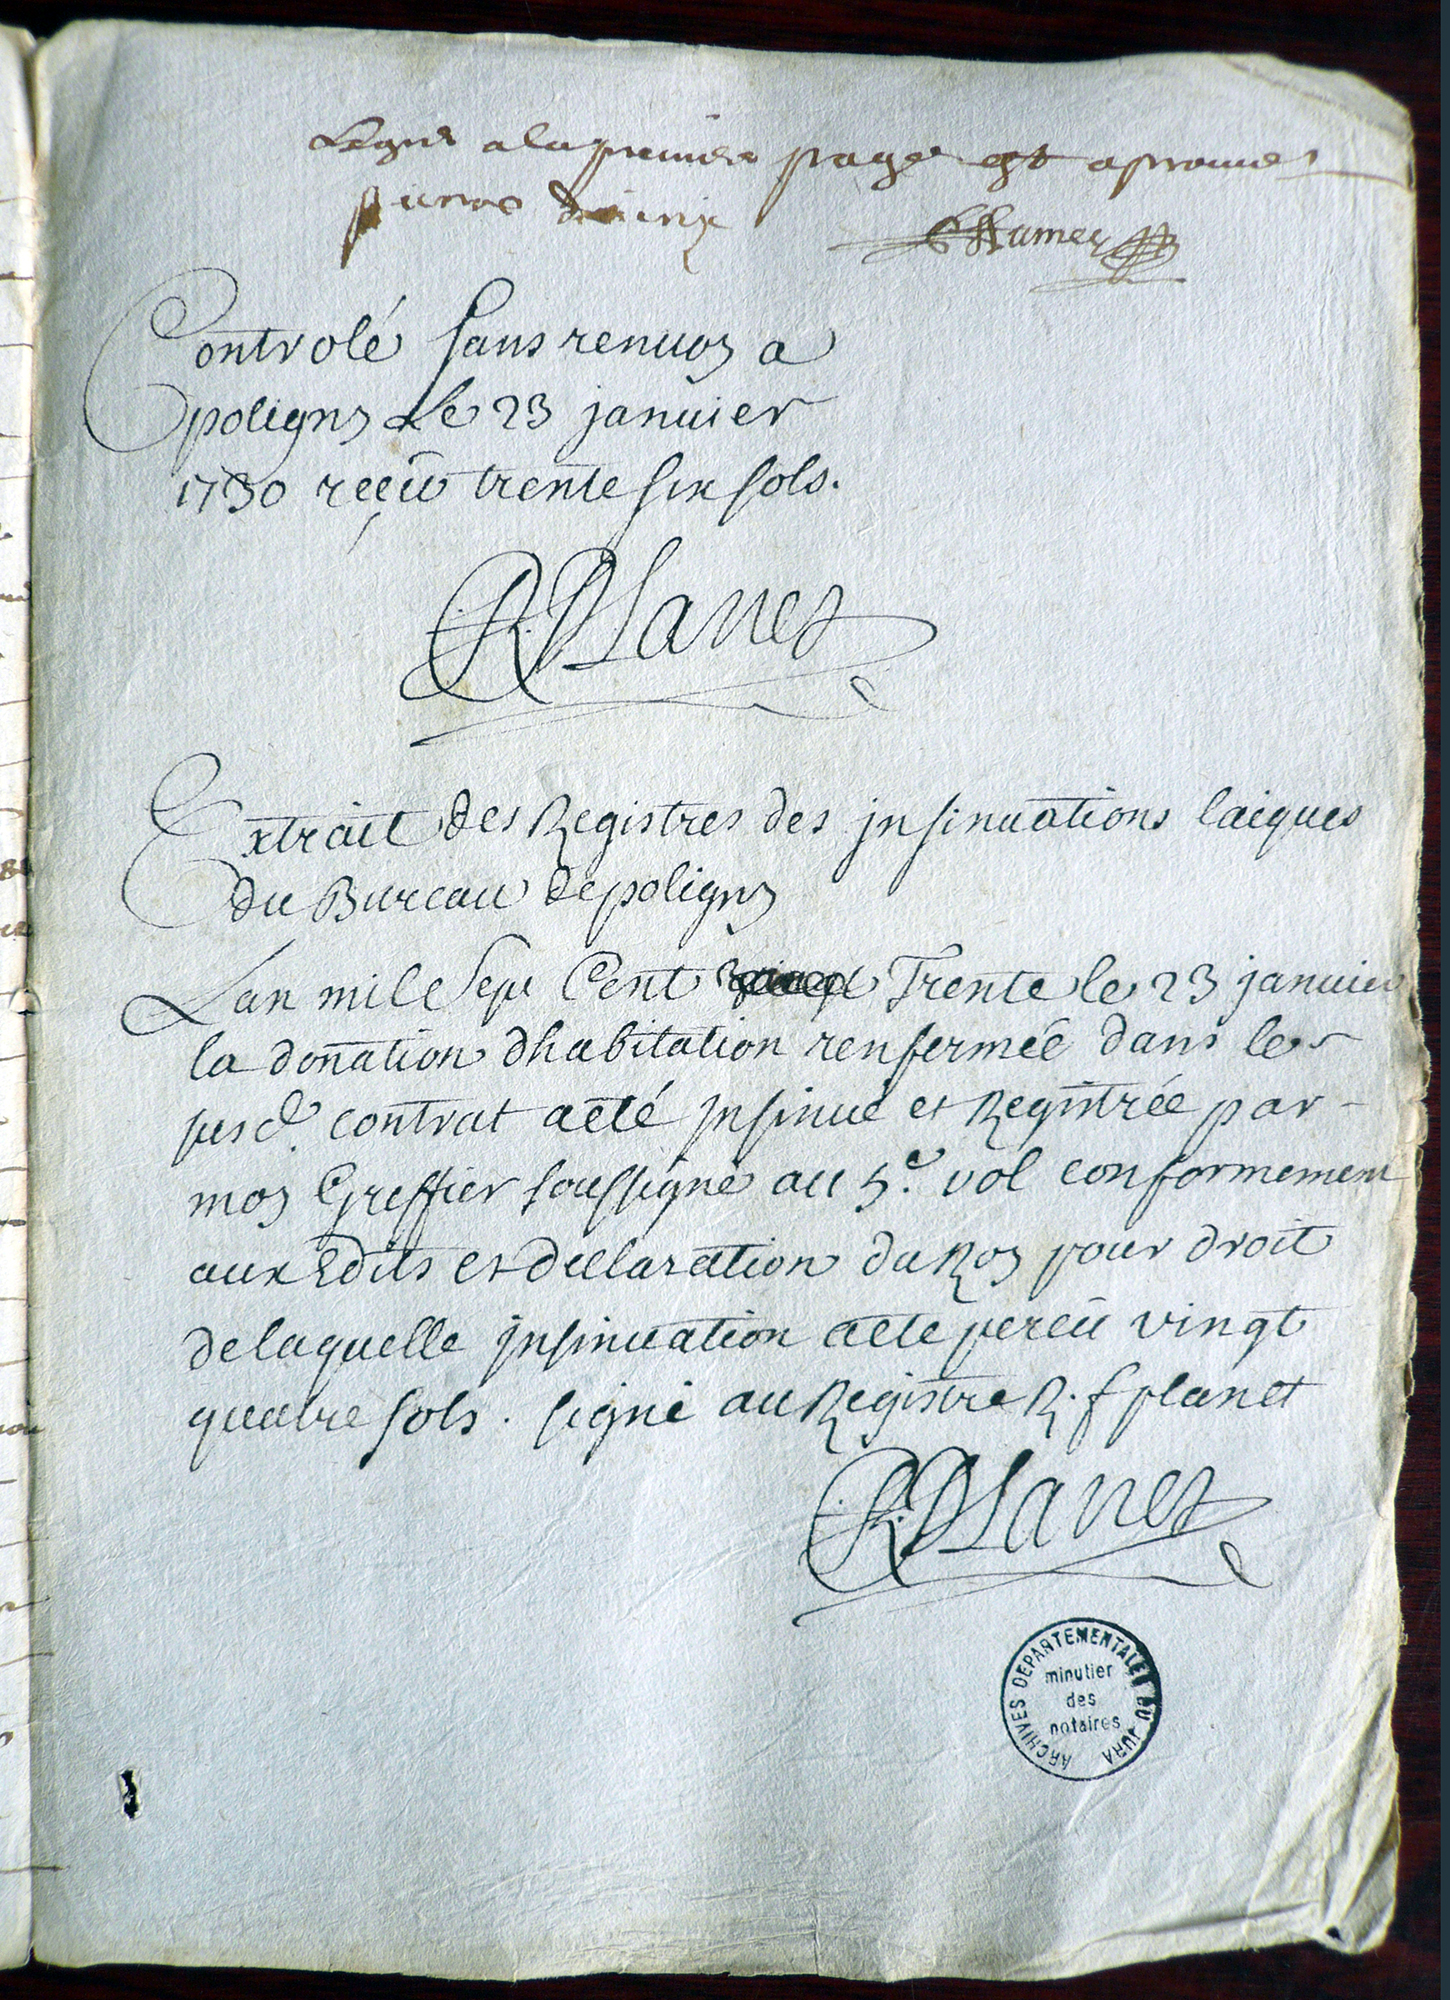 a la premiere page est aprouuer
Controlé sans renuoy a
poligny Le 23 januier
1730 reçeu trente six sols.
R Planet
Extrait des Registres des jnsinuations laiques
du Bureau de poligny
Lan mil sept Cent Trente le 23 januier
la donation dhabitation renfermée dans le
susd. contrat a eté jnsinué et Registrée par
moy Greffier soussigné au 5e. vol conformement
aux Edits et declaration du Roy pour droit
de laquelle jnsinuation a ete perceü vingt
quatre sols. signé au Registre R. f planet
R Planet
ARCHIVES DEPARTEMENTALES DU JURA
minutier
des
notaires